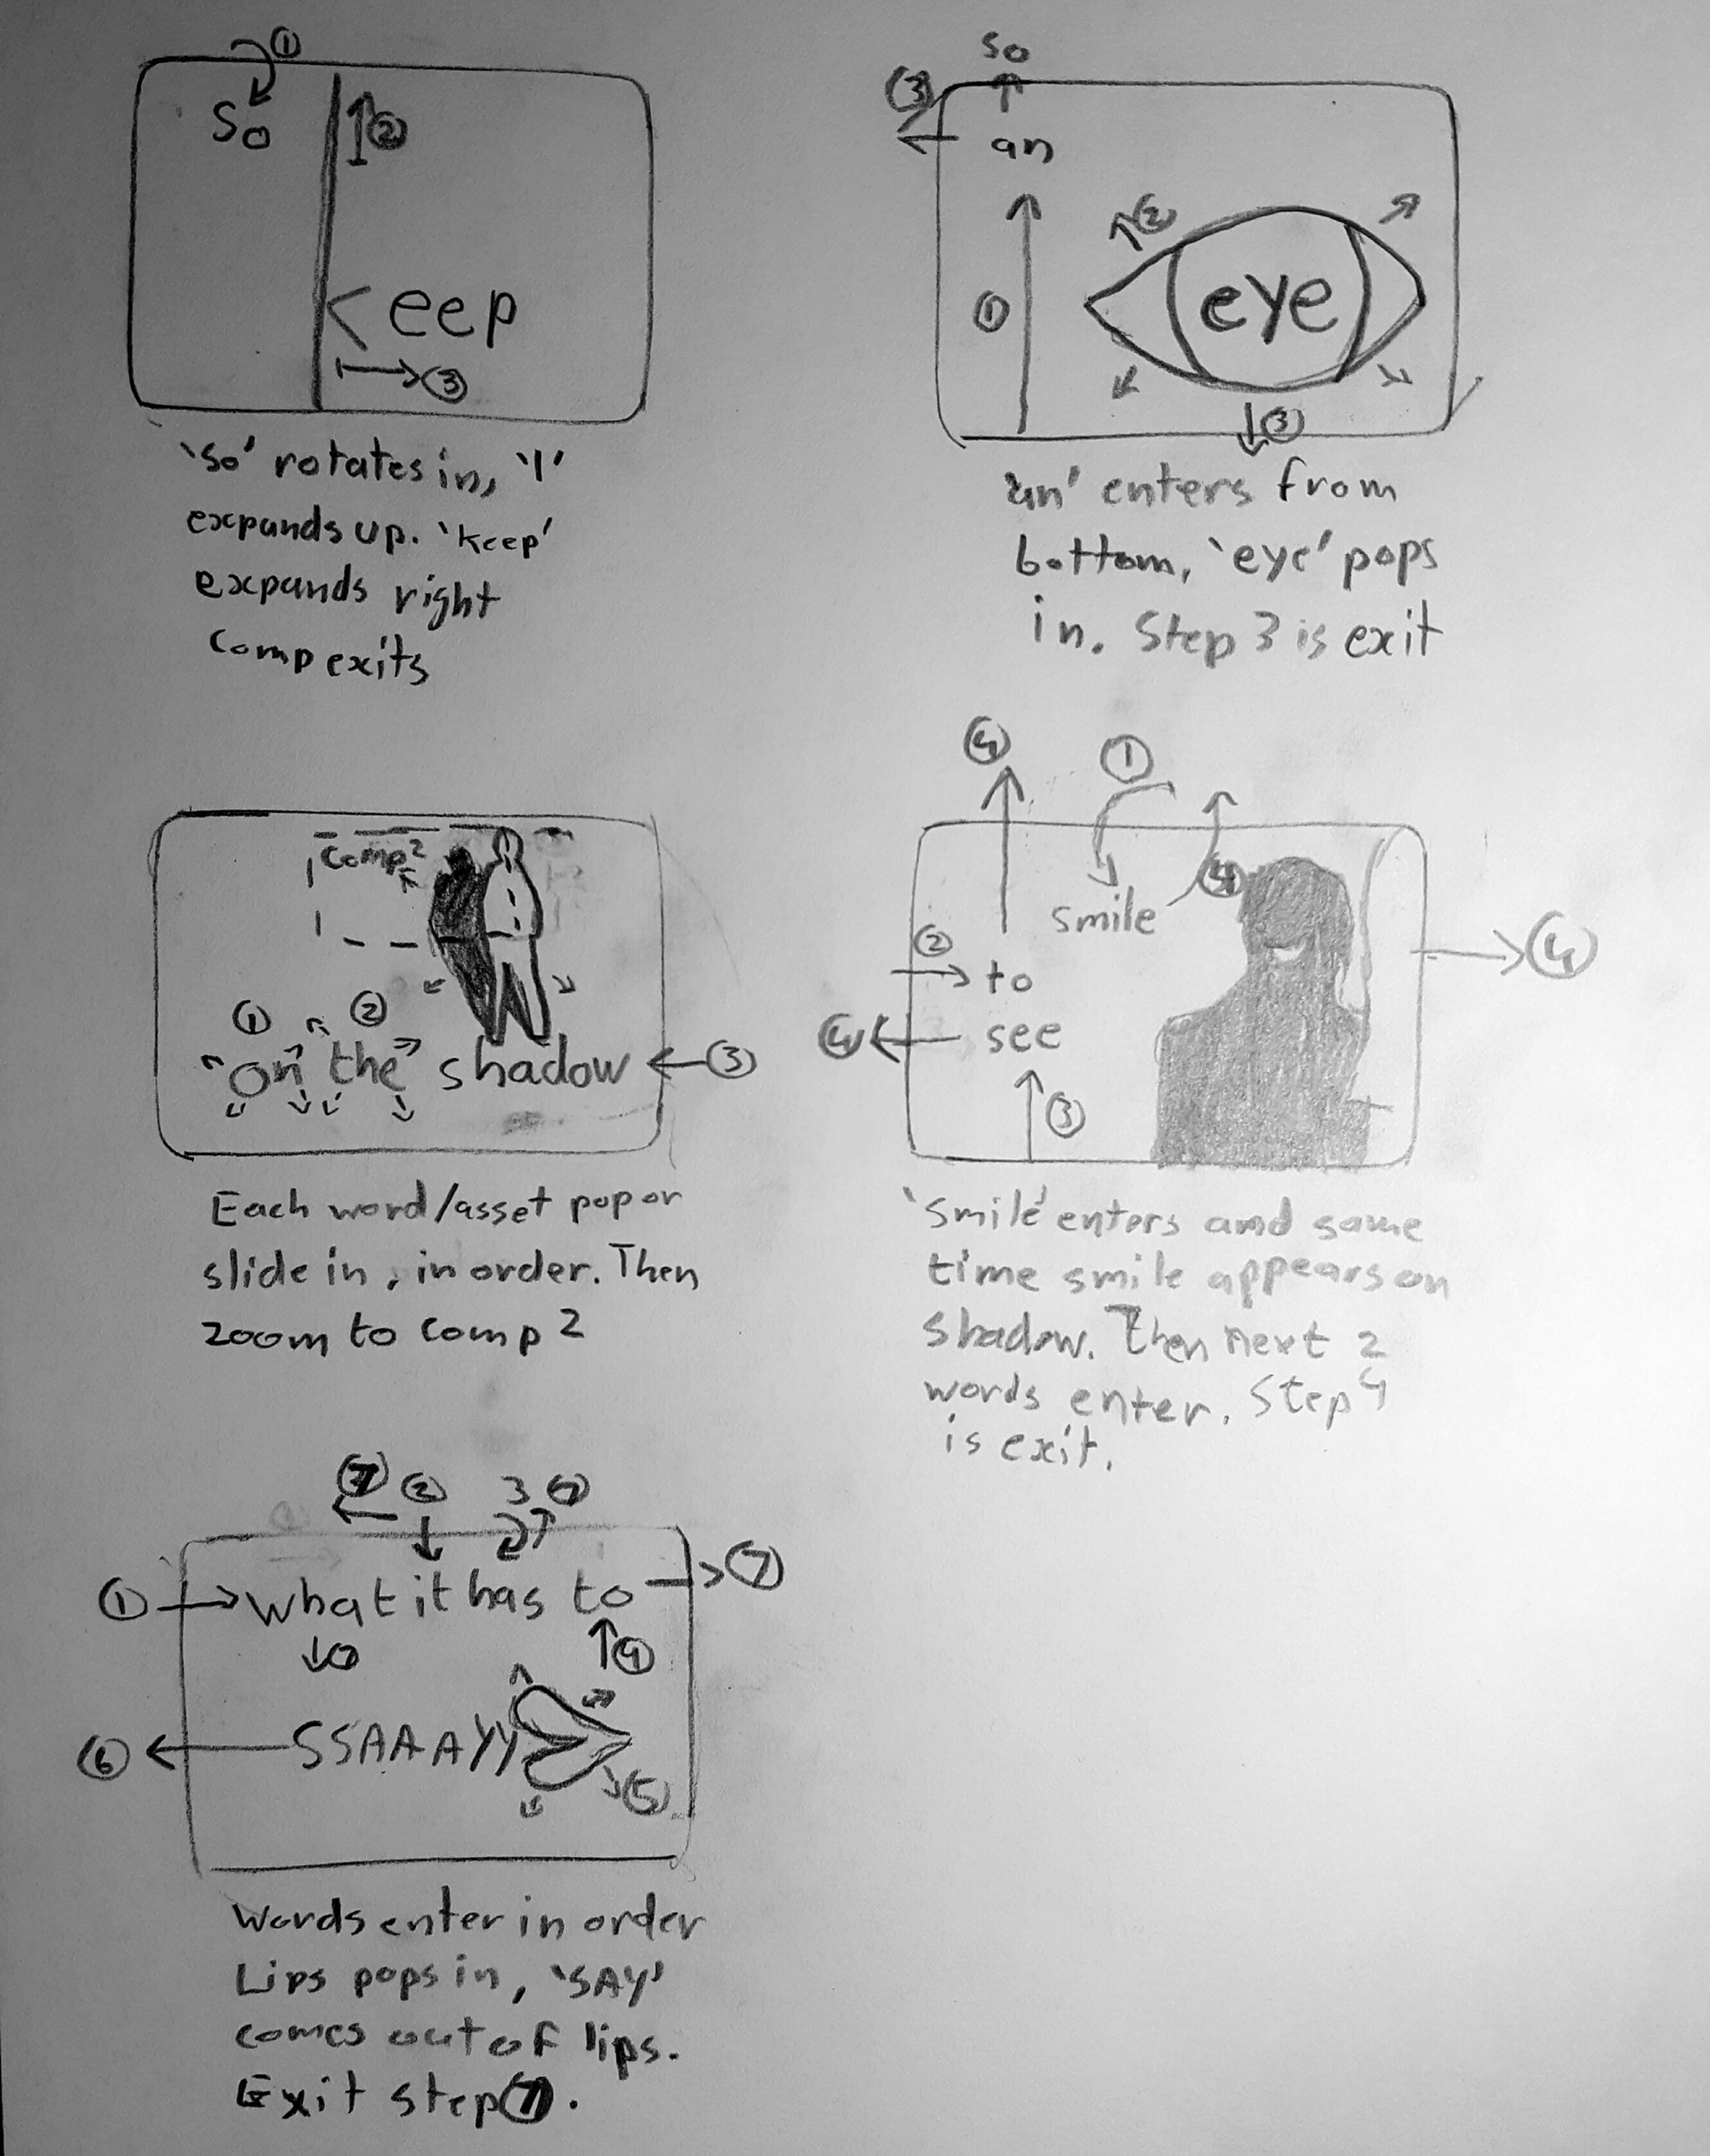 ①
So
②
Keep
③
'So' rotates in, 'I'
expands up. 'Keep'
expands right
Comp exits
so
③
an
②
①
eye
③
'an' enters from
bottom, 'eye' pops
in. Step 3 is exit
Comp 2
① ②
On the shadow ③
Each word/asset pop or
slide in, in order. Then
zoom to comp 2
④ ①
④
smile
②
to
④
④ see
③
'Smile' enters and same
time smile appears on
shadow. Then next 2
words enter. Step 4
is exit.
⑦ ② 3 ⑦
⑦
① what it has to
④
⑥ SSAAAYY
⑤
Words enter in order
Lips pops in, 'SAY'
comes out of lips.
Exit step ⑦.